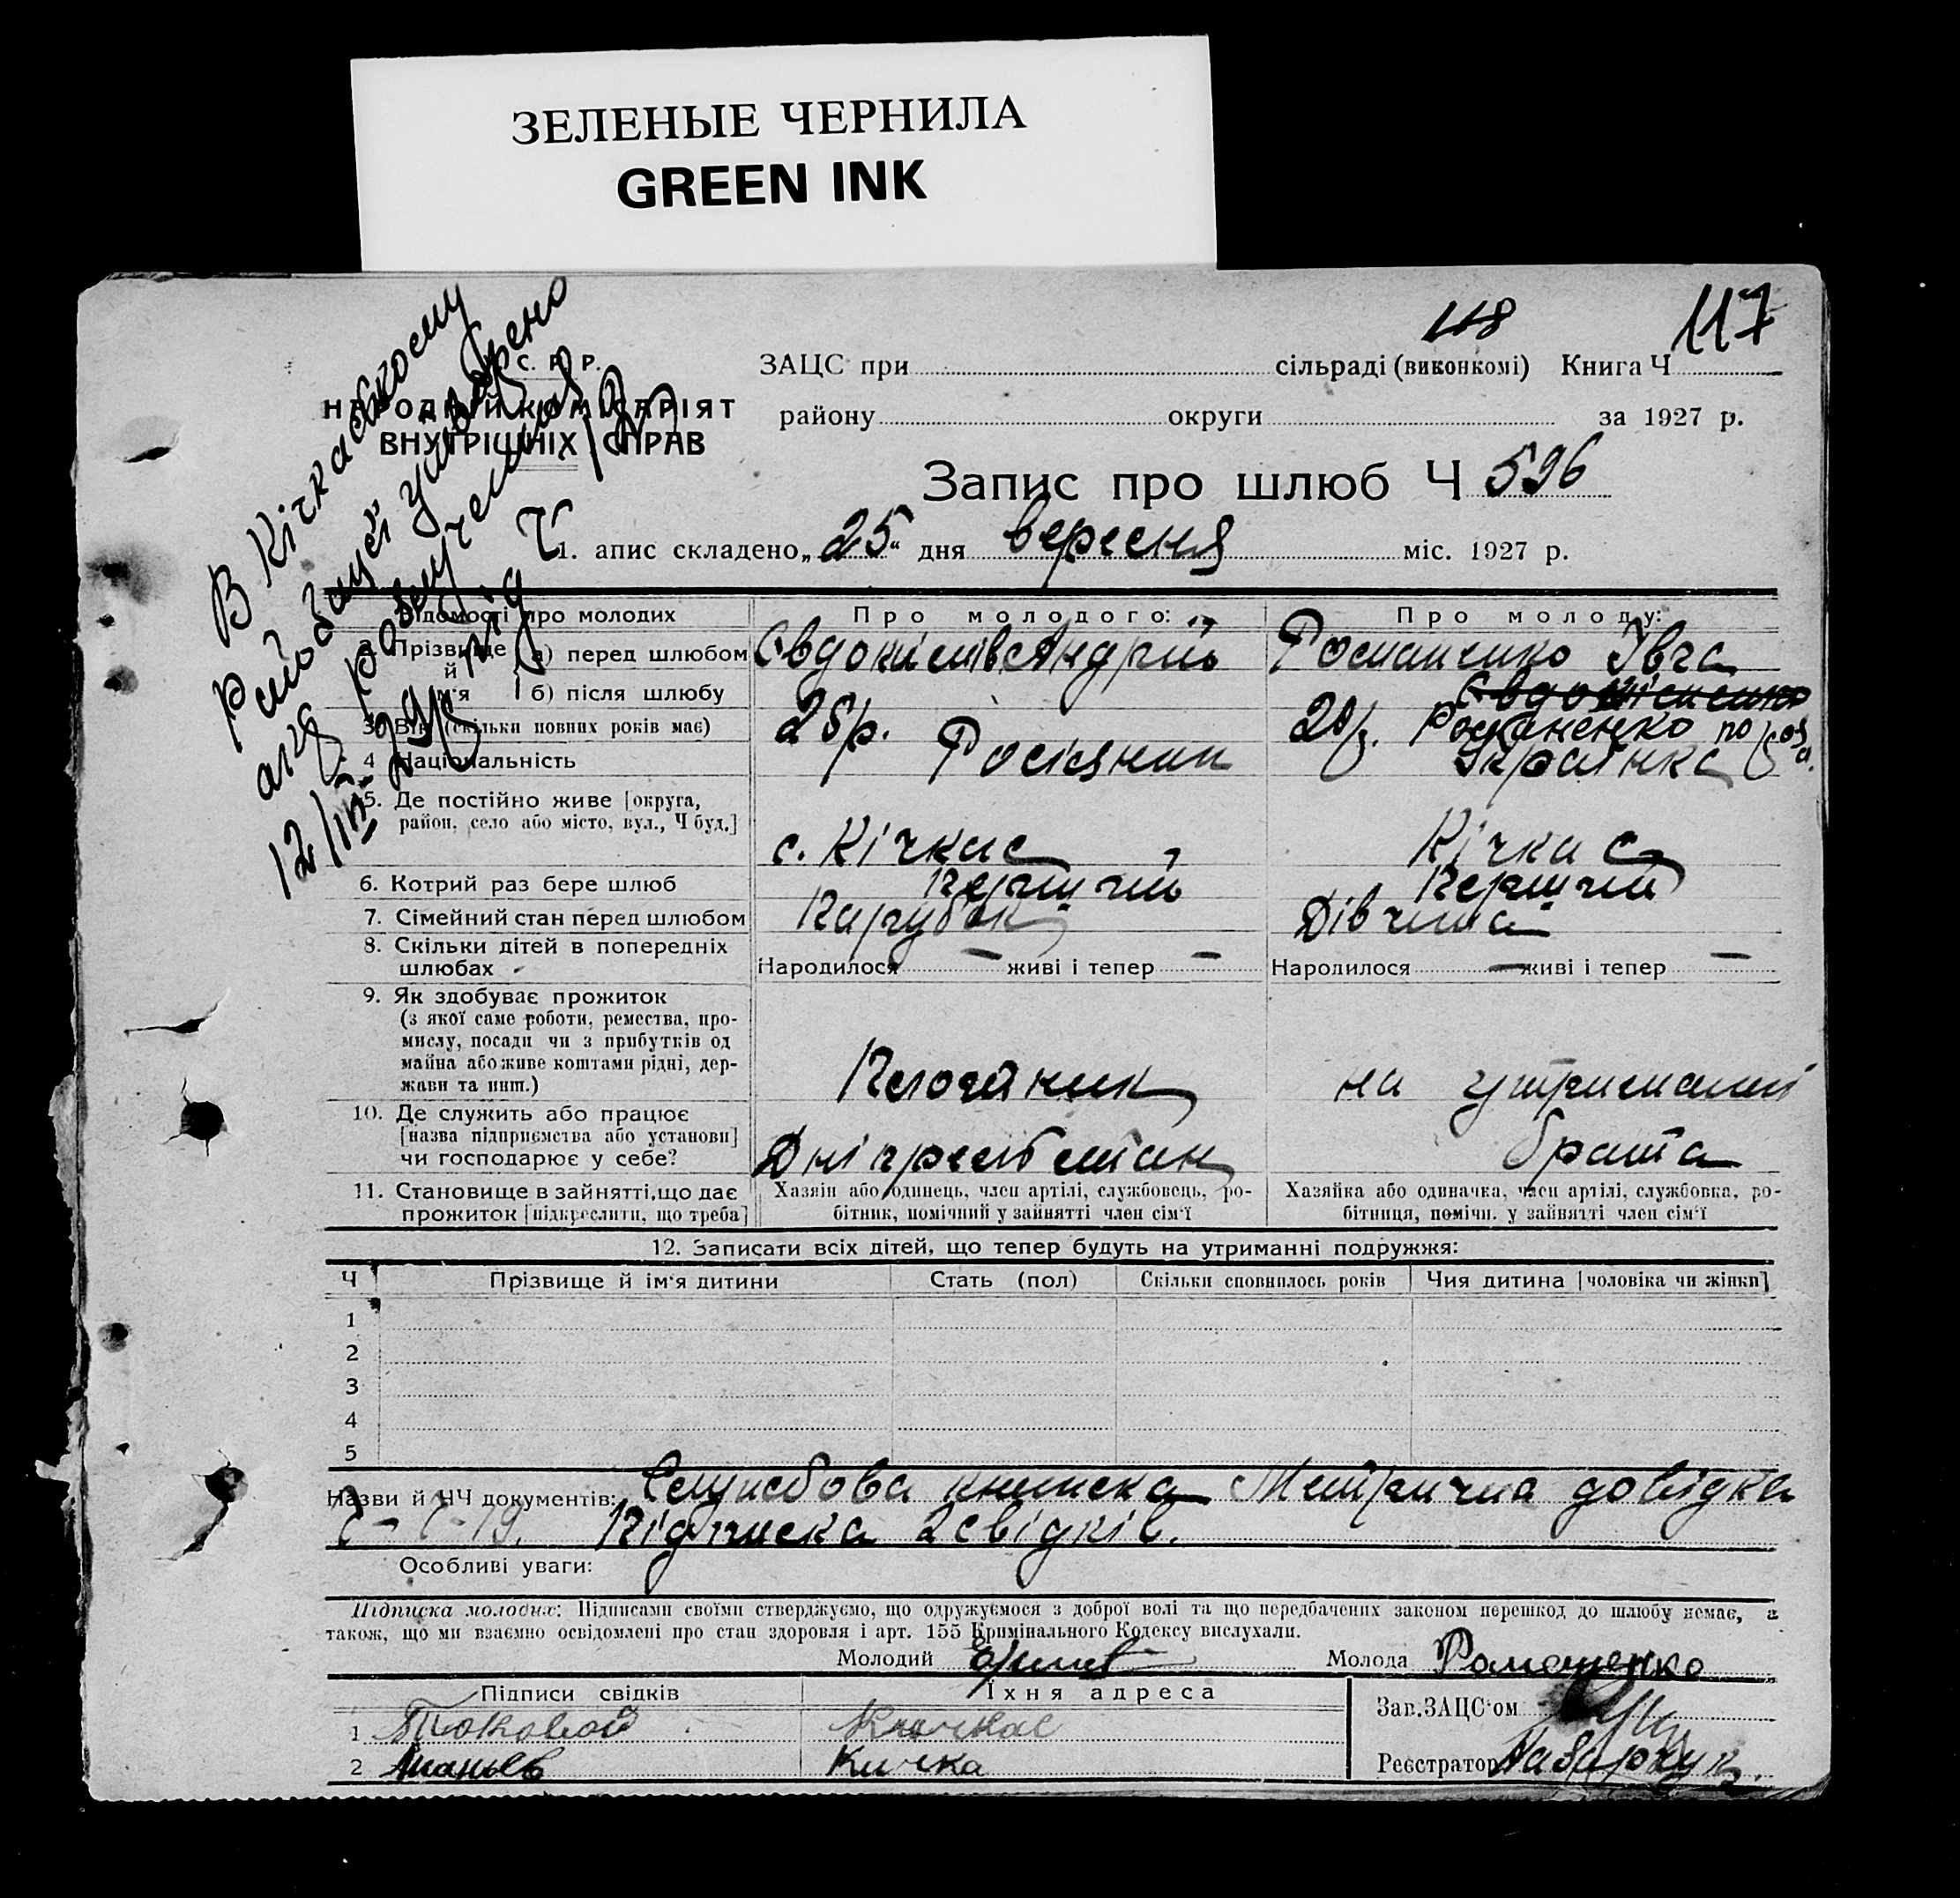 ЗЕЛЕНЫЕ ЧЕРНИЛА
GREEN INK
118
117
ЗАЦС при сільраді (виконкомі) Книга Ч
району округи за 1927 р.
С. Р. Р.
НАРОДНІЙ КОМІСАРІЯТ
ВНУТРІШНІХ СПРАВ
В Кічкаському
12/ІІ
Запис про шлюб Ч 596
1. апис складено „25“ дня вересня міс. 1927 р.
Відомості про молодих
Про молодого:
Про молоду:
2. Прізвище й ім'я
а) перед шлюбом
Євдокімів Андрій
Романенко Івга
б) після шлюбу
Романенко
3. Вік (скільки повних років має)
4. Національність
Росіянин
Українка
5. Де постійно живе [округа,
район, село або місто, вул., Ч буд.]
с. Кічкас
Кічкас
6. Котрий раз бере шлюб
Перший
Перший
7. Сімейний стан перед шлюбом
Парубок
Дівчина
8. Скільки дітей в попередніх
шлюбах
Народилося — живі і тепер —
Народилося — живі і тепер —
9. Як здобуває прожиток
(з якої саме роботи, ремества, про-
мислу, посади чи з прибутків од
майна або живе коштами рідні, дер-
жави та инш.)
на утриманні
10. Де служить або працює
[назва підприємства або установи]
чи господарює у себе?
брата
11. Становище в зайнятті, що дає
прожиток [підкреслити, що треба]
Хазяін або одинець, член артілі, службовець, ро-
бітник, помічний у зайнятті член сім'ї
Хазяйка або одиначка, член артілі, службовка, ро-
бітниця, помічн. у зайнятті член сім'ї
12. Записати всіх дітей, що тепер будуть на утриманні подружжя:
Ч
Прізвище й ім'я дитини
Стать (пол)
Скільки сповнилось років
Чия дитина [чоловіка чи жінки]
1
2
3
4
5
Назви й ЧЧ документів: Служебова книжка Метрична довідка
Підписка 2 свідків.
Особливі уваги:
Підписка молодих: Підписами своїми стверджуємо, що одружуємося з доброї волі та що передбачених законом перешкод до шлюбу немає, а
також, що ми взаємно освідомлені про стан здоровля і арт. 155 Кримінального Кодексу вислухали.
Молодий
Молода Романенко
Підписи свідків
Їхня адреса
Зав. ЗАЦС'ом
1
Кичкас
2 Ананьев
Кичка
Реєстратор Назарчук